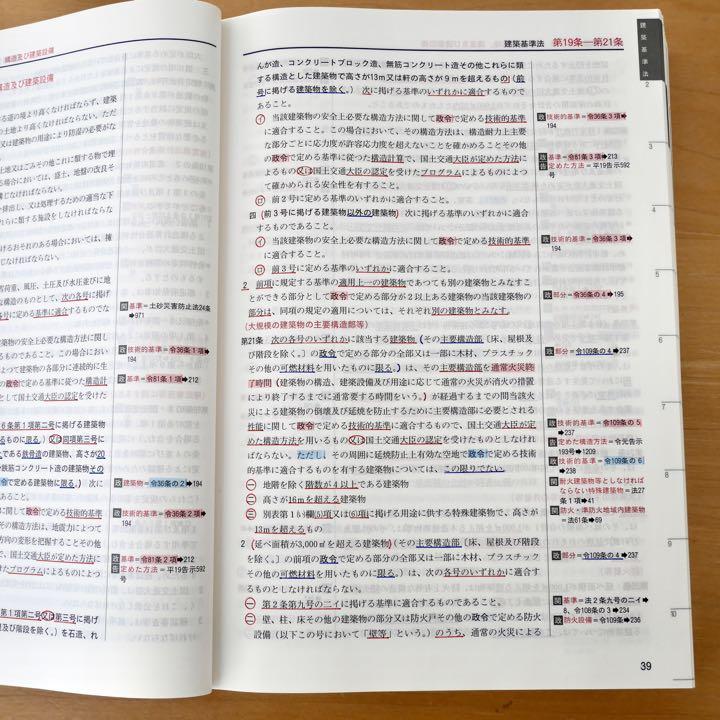 構造及び建築設備
構造及び建築設備
る道の境より高くなければならず、建築
の土地より高くなければならない。ただ
又は建築物の用途により防湿の必要がな
い。
土地又はごみその他これに類する物で埋
る場合においては、盛土、地盤の改良そ
じなければならない。
排出し、又は処理するための適当な下
れらに類する施設をしなければならな
けるおそれのある場合においては、擁
じなければならない。
荷重、風圧、土圧及び水圧並びに地
な構造のものとして、次の各号に掲げ
号に定める基準に適合するものでな
関 基準=土砂災害防止法24条
➡971
物の安全上必要な構造方法に関し
るものであること。この場合におい
よつて建築物の各部分に連続的に生
の政令で定める基準に従つた構造計
として国土交通大臣の認定を受けた
政 技術的基準=令36条1項➡
194
政 基準=令81条1項➡212
6条第1項第二号に掲げ
るものに限る。)又は同項第三号に
である鉄骨造の建築物、高さが20
筋コンクリート造の建築物その
令で定める建築物に限る。) 次に
政 建築物=令36条の2➡194
に関して政令で定める技術的基準
その構造方法は、地震力によつて
方向の変形を把握することその他
、国土交通大臣が定めた方法に
プログラムによるものによつ
政 技術的基準=令36条2項➡
194
政 基準=令81条2項➡212
告 定めた方法=平19告示592
号
第1項第二号又は第三号に掲げ
及び階段を除く。)を石造、れ
建築基準法 第19条―第21条
建築基準法
んが造、コンクリートブロック造、無筋コンクリート造その他これらに類
する構造とした建築物で高さが13m又は軒の高さが9mを超えるもの(前
号に掲げる建築物を除く。) 次に掲げる基準のいずれかに適合するもので
あること。
イ 当該建築物の安全上必要な構造方法に関して政令で定める技術的基準
に適合すること。この場合において、その構造方法は、構造耐力上主要
な部分ごとに応力度が許容応力度を超えないことを確かめることその他
の政令で定める基準に従つた構造計算で、国土交通大臣が定めた方法に
よるもの又は国土交通大臣の認定を受けたプログラムによるものによつ
て確かめられる安全性を有すること。
ロ 前2号に定める基準のいずれかに適合すること。
四 (前3号に掲げる建築物以外の建築物) 次に掲げる基準のいずれかに適合
するものであること。
イ 当該建築物の安全上必要な構造方法に関して政令で定める技術的基準
に適合すること。
ロ 前3号に定める基準のいずれかに適合すること。
2 前項に規定する基準の適用上一の建築物であつても別の建築物とみなす
ことができる部分として政令で定める部分が2以上ある建築物の当該建築物の
部分は、同項の規定の適用については、それぞれ別の建築物とみなす。
(大規模の建築物の主要構造部等)
第21条 次の各号のいずれかに該当する建築物(その主要構造部(床、屋根及
び階段を除く。)の政令で定める部分の全部又は一部に木材、プラスチック
その他の可燃材料を用いたものに限る。)は、その主要構造部を通常火災終
了時間(建築物の構造、建築設備及び用途に応じて通常の火災が消火の措置
により終了するまでに通常要する時間をいう。)が経過するまでの間当該火
災による建築物の倒壊及び延焼を防止するために主要構造部に必要とされる
性能に関して政令で定める技術的基準に適合するもので、国土交通大臣が定
めた構造方法を用いるもの又は国土交通大臣の認定を受けたものとしなけれ
ばならない。ただし、その周囲に延焼防止上有効な空地で政令で定める技術
的基準に適合するものを有する建築物については、この限りでない。
一 地階を除く階数が4以上である建築物
二 高さが16mを超える建築物
三 別表第1(い)欄(5)項又は(6)項に掲げる用途に供する特殊建築物で、高さが
13mを超えるもの
2 (延べ面積が3,000㎡を超える建築物)(その主要構造部(床、屋根及び階段
を除く。)の前項の政令で定める部分の全部又は一部に木材、プラスチック
その他の可燃材料を用いたものに限る。)は、次の各号のいずれかに適合す
るものとしなければならない。
一 第2条第九号の二イに掲げる基準に適合するものであること。
二 壁、柱、床その他の建築物の部分又は防火戸その他の政令で定める防火
設備(以下この号において「壁等」という。)のうち、通常の火災による
政 技術的基準=令36条3項➡
194
政 基準=令81条3項➡213
告 定めた方法=平19告示592
号
政 技術的基準=令36条3項➡
194
政 部分=令36条の4➡195
政 部分=令109条の4➡237
政 技術的基準=令109条の5
➡237
告 定めた構造方法=令元告示
193号➡1209
政 技術的基準=令109条の6
➡238
関 耐火建築物等としなければ
ならない特殊建築物=法27
条1項➡41
関 防火・準防火地域内建築物
=法61条➡69
政 部分=令109条の4➡237
関 基準=法2条九号の二イ➡
8、令108条の3➡234
政 防火設備=令109条➡236
2
3
4
5
6
7
8
9
10
39